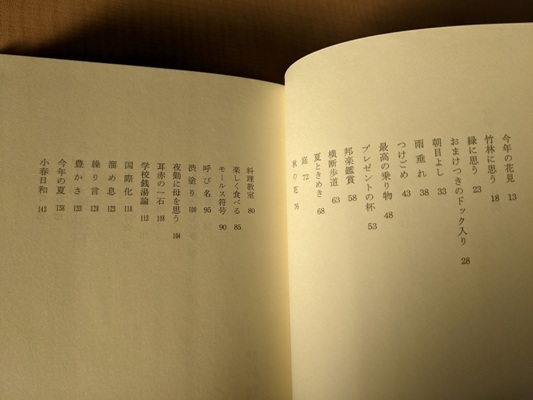 今年の花見 13
竹林に思う 18
緑に思う 23
おまけつきのドック入り 28
朝目よし 33
雨垂れ 38
つけごめ 43
最高の乗り物 48
プレゼントの杯 53
邦楽鑑賞 58
横断歩道 63
夏ときめき 68
庭 72
秋の花 76
料理教室 80
楽しく食べる 85
モールス符号 90
呼び名 95
渋塗り 100
夜勤に母を思う 104
耳赤の一石 108
学校銭湯論 112
国際化 116
溜め息 122
繰り言 128
豊かさ 133
今年の夏 138
小春日和 143